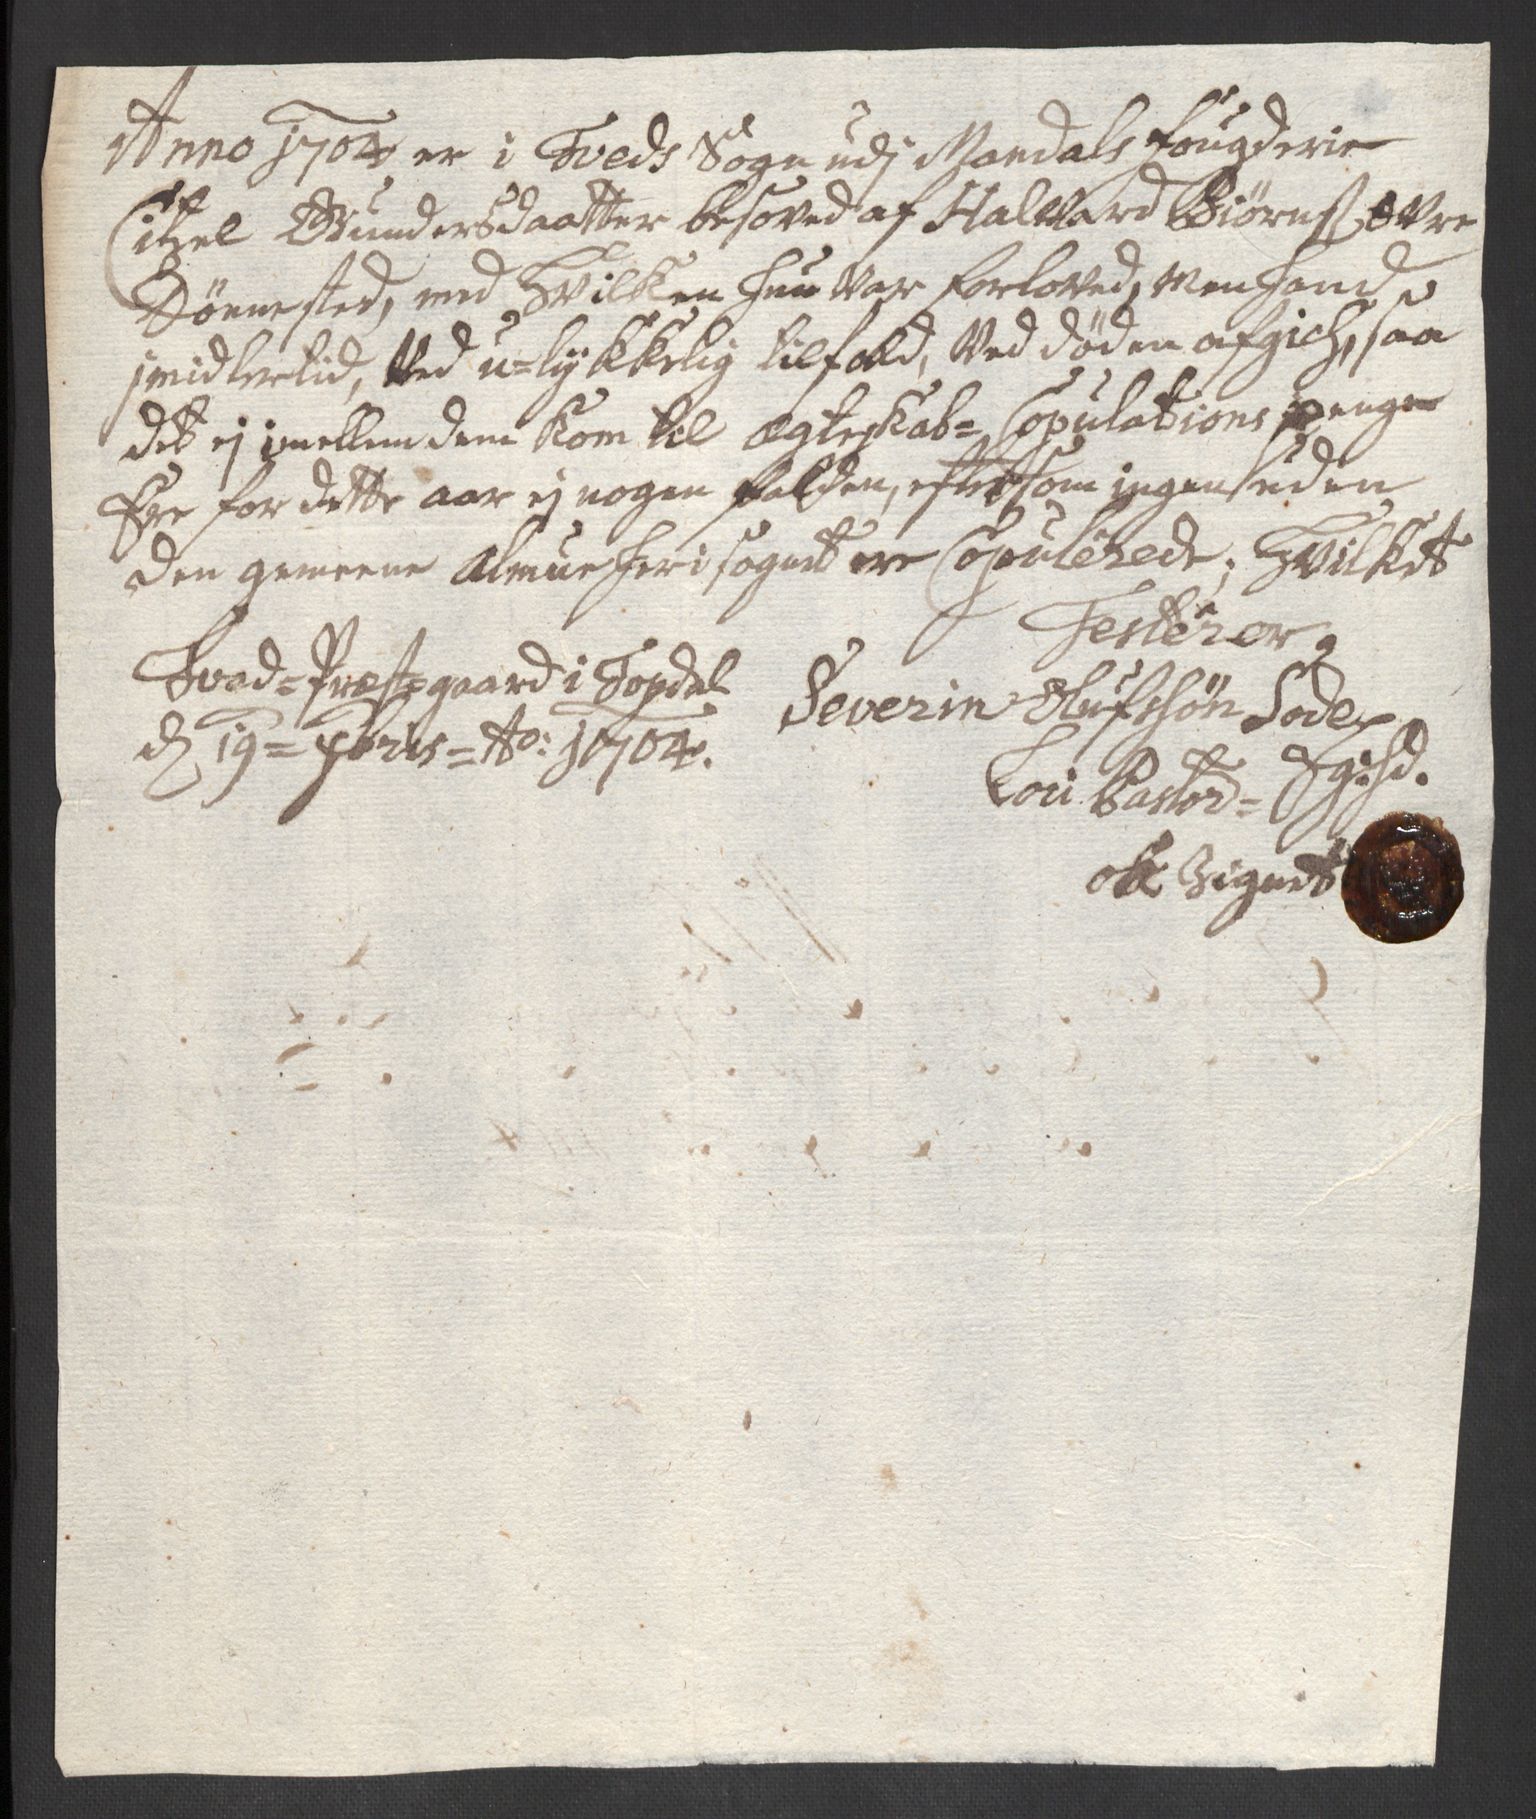 Anno 1704 er i Tveds Sogn udj Mandals fougderie
Citzel Gundersdaatter besoved af Halward Biørnss: Øvre
Dønnested, med Hvilken hun var forloved, men hand
jmidlertid, ved u=lykkelig tilfald, ved døden afgich, saa
det ej imellem dem kom til ægteskab= Copulations penge
Ere for dette aar ej nogen falden, eftersom ingen uden
den gemeene Almue her i sognet ere Copulerede; Hvilket
Testerer,
Tved=Præstegaard i Topdal
d 19= Xbris= Ao: 1704.
Severin Olufssøn Lode
Loci Pastor= Egh:hd.
ok Zignet